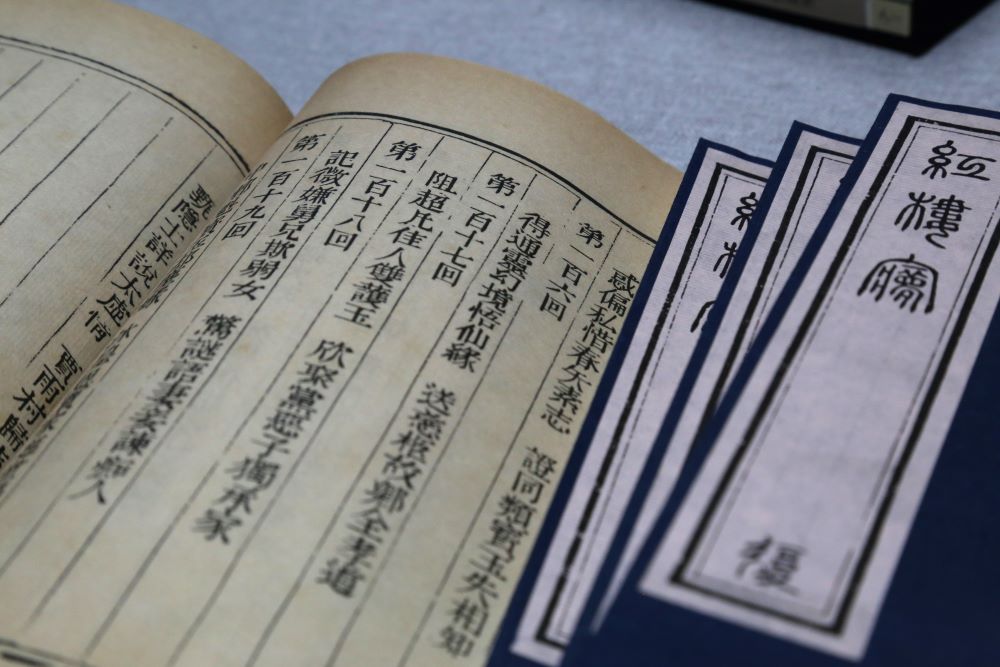 感偏私惜春矢素志　證同類寶玉失相知
第一百六回
得通靈幻境悟仙緣　送慈柩故鄉全孝道
第一百十七回
阻超凡佳人雙護玉　欣聚黨惡子獨承家
第一百十八回
記微嫌舅兄欺弱女　驚謎語妻妾諫癡人
第一百十九回
甄隱士詳說太虛情　賈雨村歸
紅樓夢
紅樓